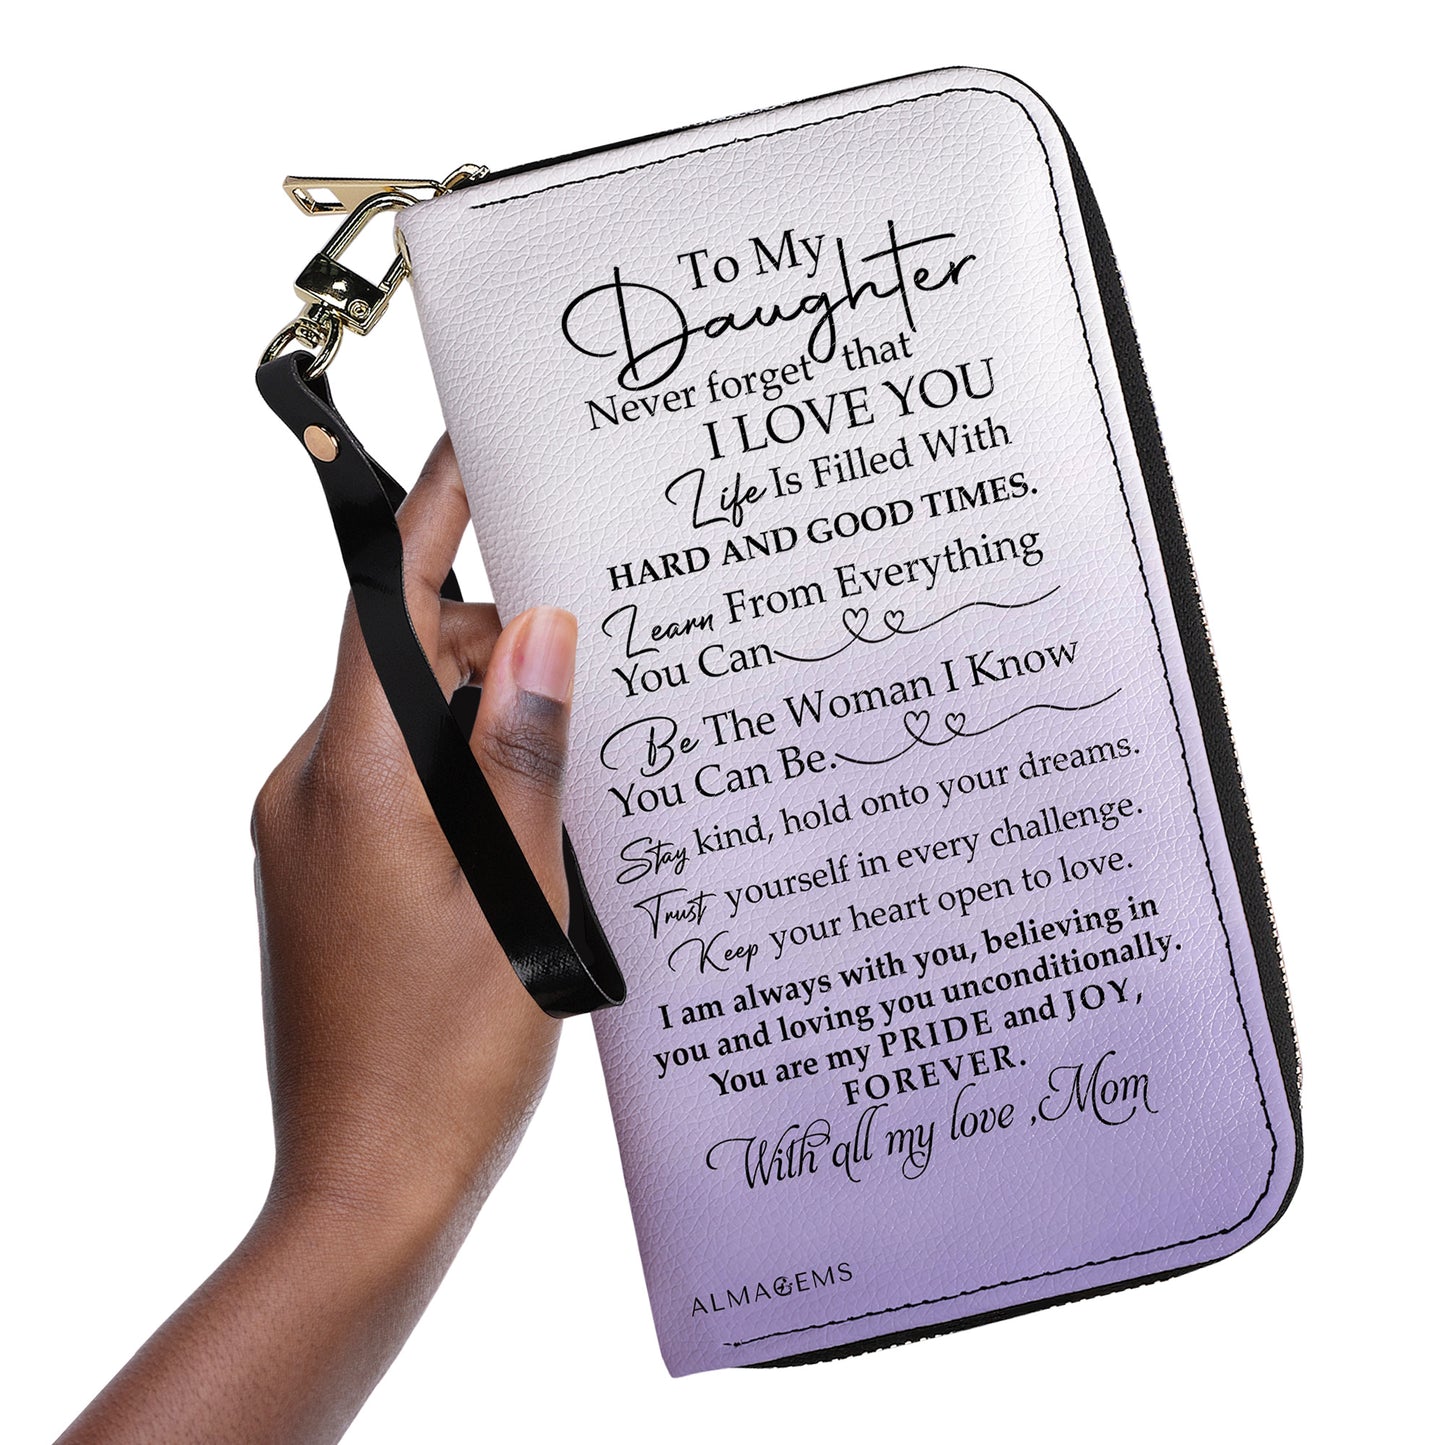 To My
Daughter
Never forget that
I LOVE YOU
Life Is Filled With
HARD AND GOOD TIMES.
Learn From Everything
You Can
Be The Woman I Know
You Can Be.
Stay kind, hold onto your dreams.
Trust yourself in every challenge.
Keep your heart open to love.
I am always with you, believing in
you and loving you unconditionally.
You are my PRIDE and JOY,
FOREVER.
With all my love ,Mom
ALMAGEMS